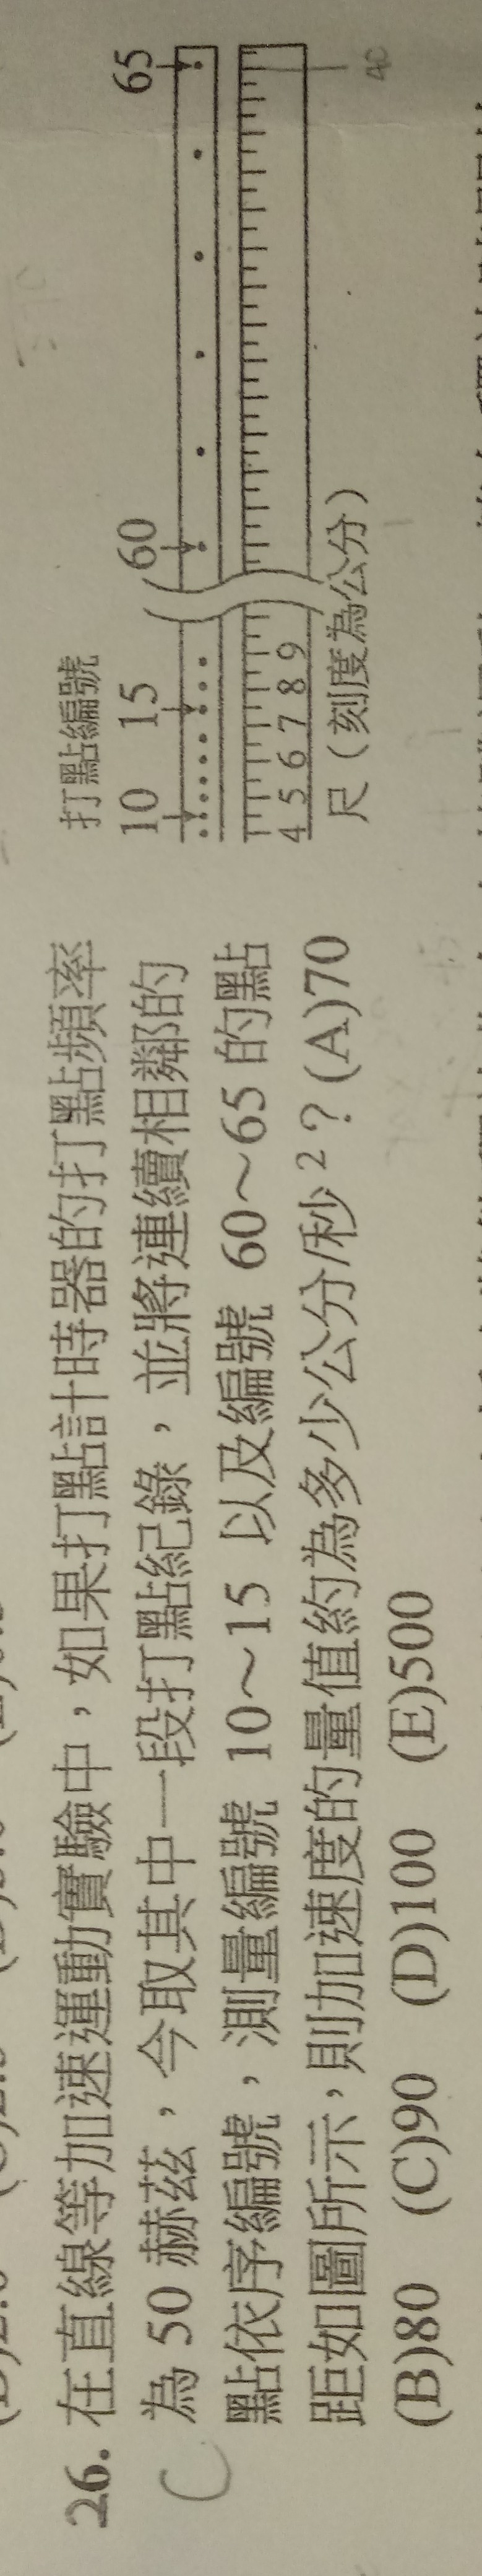 26. 在直線等加速運動實驗中，如果打點計時器的打點頻率
為 50 赫茲，今取其中一段打點紀錄，並將連續相鄰的
點依序編號，測量編號 10～15 以及編號 60～65 的點
距如圖所示，則加速度的量值約為多少公分/秒²？(A)70
(B)80 (C)90 (D)100 (E)500
C
打點編號
10 15 60 65
4 5 6 7 8 9
尺（刻度為公分）
40